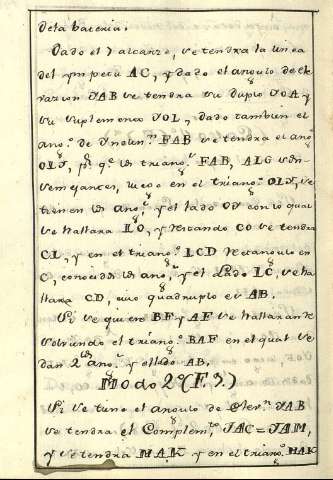 de la bateria.
Dado el Y alcanze, se tendra la linea
del ympetu AC, y dado el angulo de ele
vazion JAB se tendra su duplo JOA y
su suplemento JOL, dado tambien el
ang.º de Ynclin.ⁿ FAB se tendra el ang
OLJ, p.r q.e los triang.s FAB, ALG son
semejantes, luego en el triang.º OLJ, se
tienen los ang.s, y el lado OJ con lo qual
se hallara LO, y Restando CO se tendra
CL, y en el triang.º LCD Rectangulo en
C, conocidos los ang.s, y el lado LC, se ha
llara CD, cuio quadruplo es AB.
Si se quiere BF y AF se hallaran Re
solviendo el triang.º BAF en el qual se
dan 2 los ang.s y el lado AB.
Modo 2º (F. 9.)
Si se tubo el angulo de Elev.n JAB
se tendra el Complem.to JAC = JAM,
y se tendra MAK y en el triang.º MAK